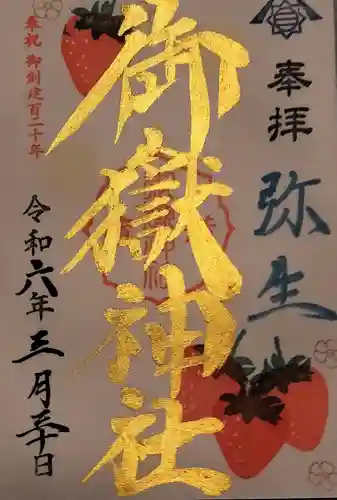 奉拝
弥生
御嶽神社
奉祝 御創建百二十年
令和六年三月三十日